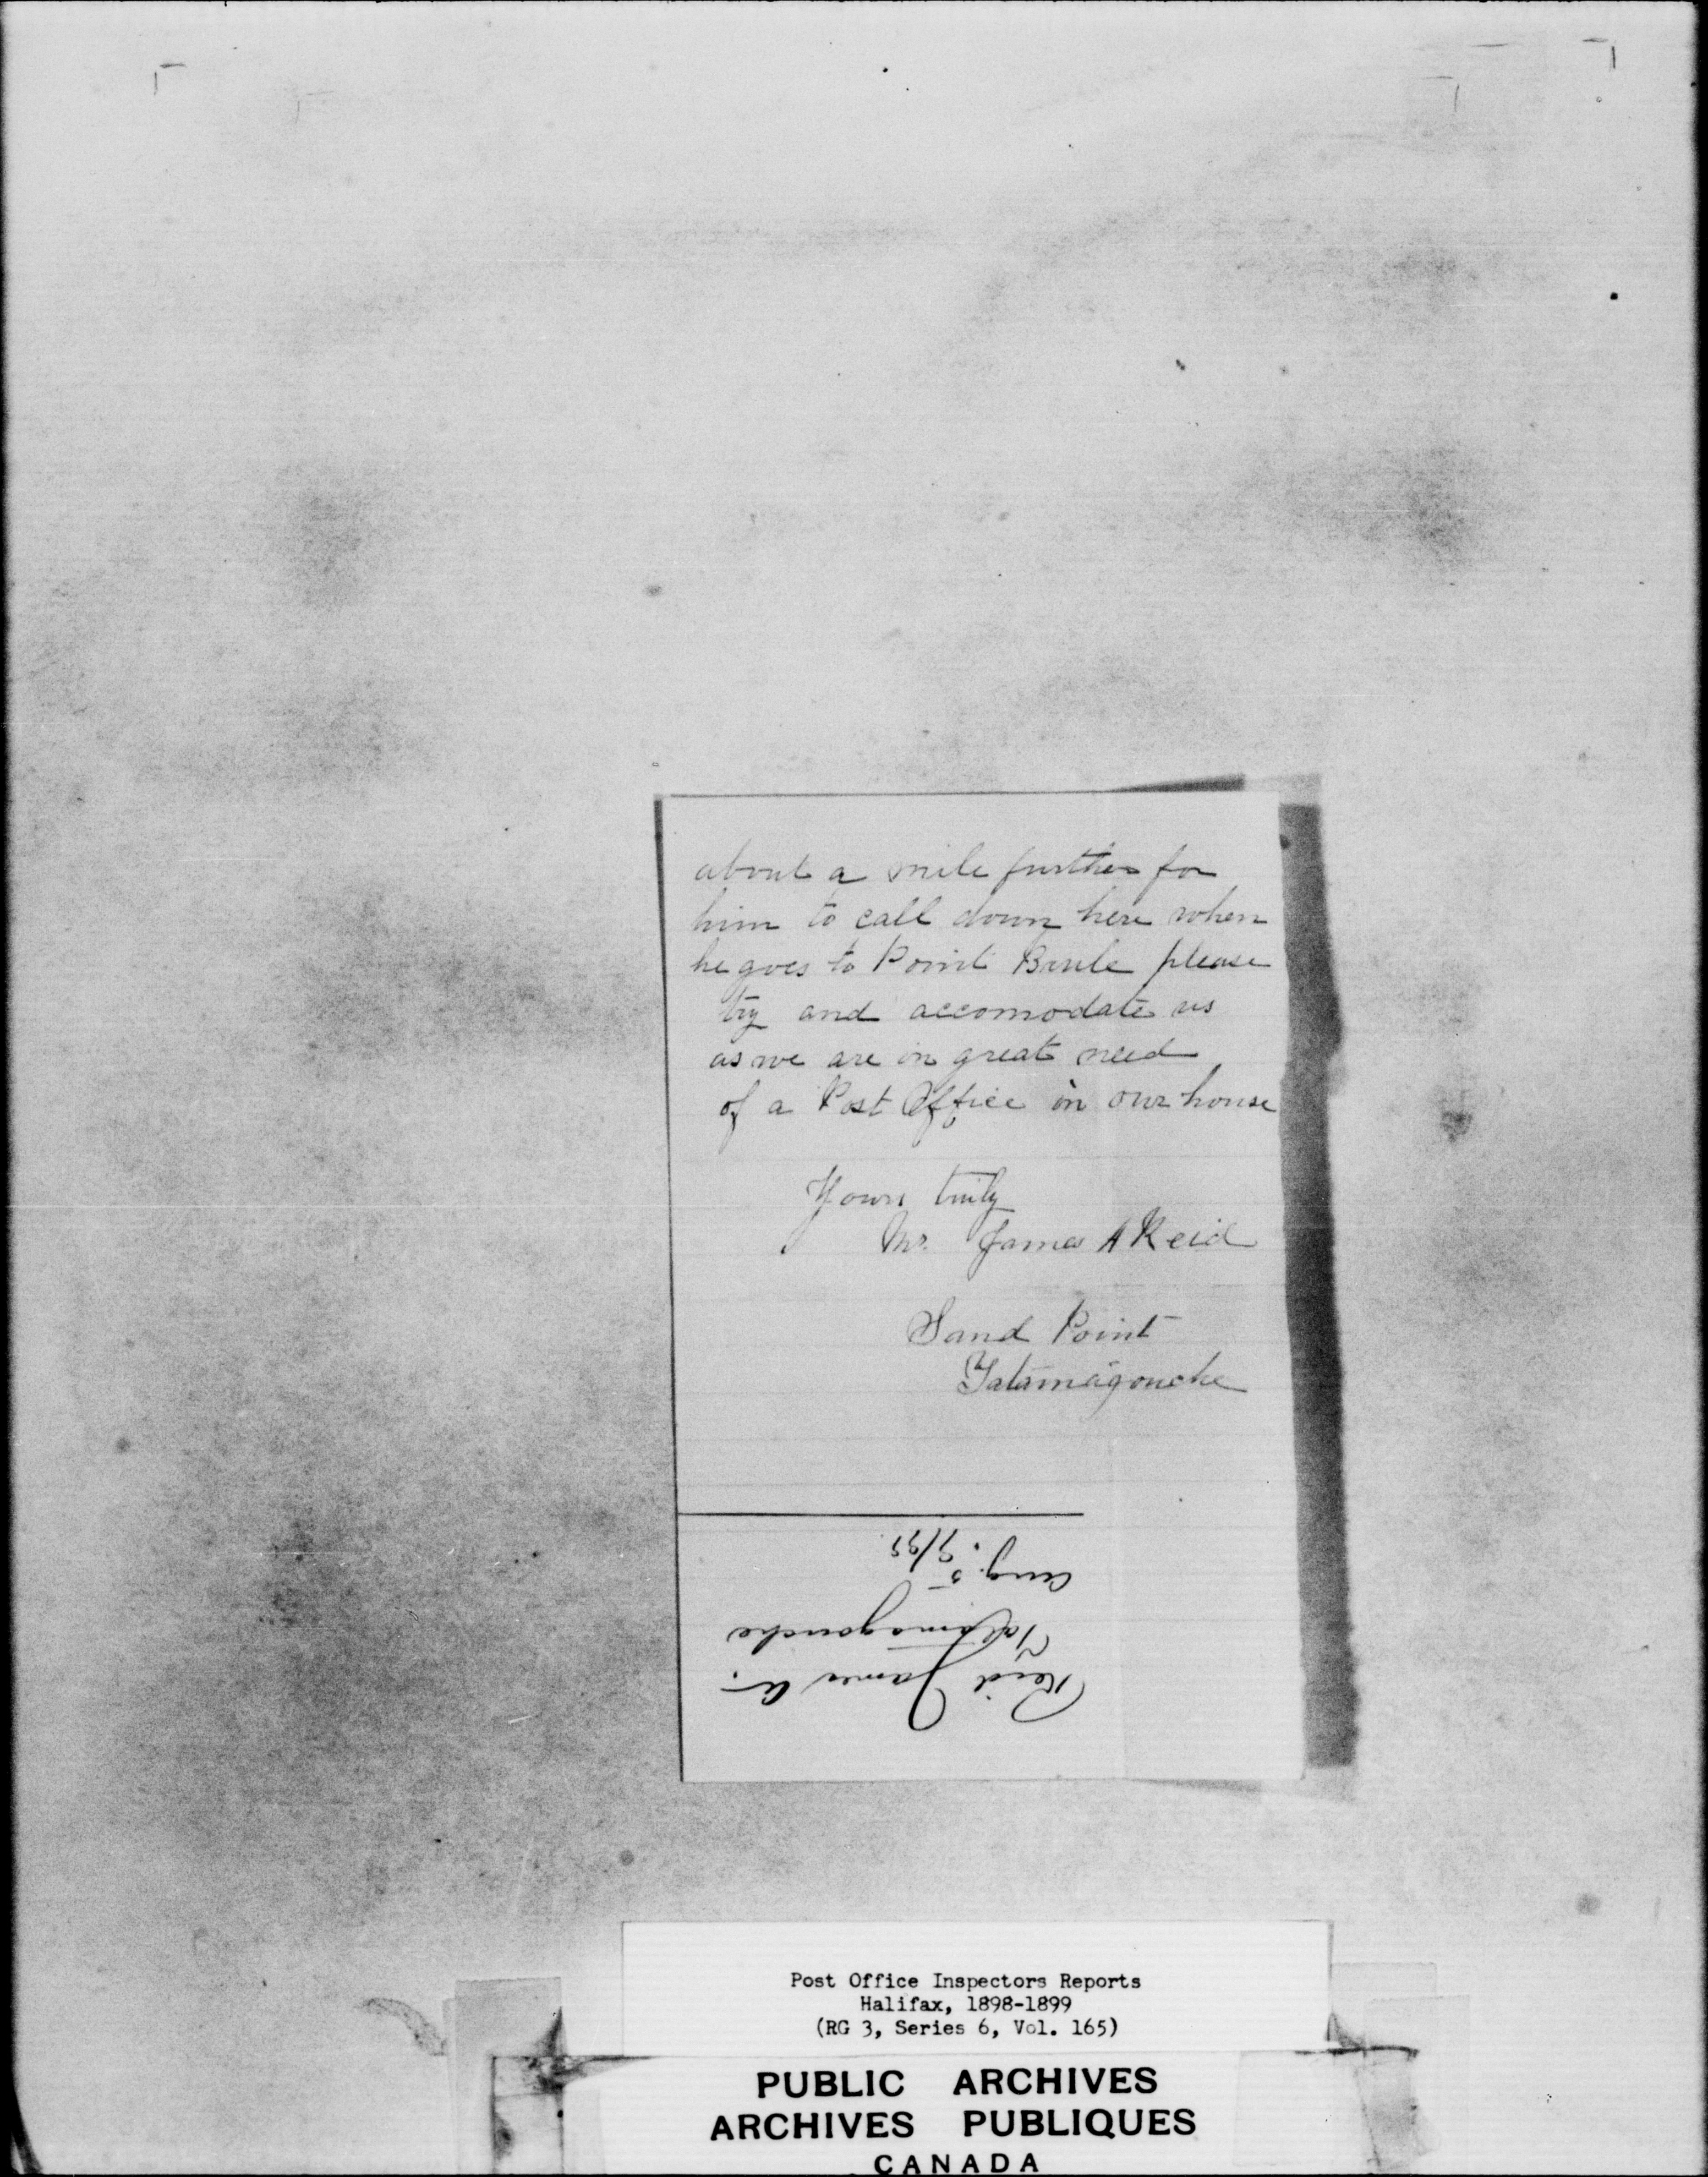 about a mile further for
him to call down here when
he goes to Point Brule please
try and accomodate us
as we are in great need
of a Post Office in our house
Yours truly
Mr. James A Reid
Sand Point
Tatamagouche
Reid James A.
Tatamagouche
Aug. 5
Post Office Inspectors Reports
Halifax, 1898-1899
(RG 3, Series 6, Vol. 165)
PUBLIC ARCHIVES
ARCHIVES PUBLIQUES
CANADA